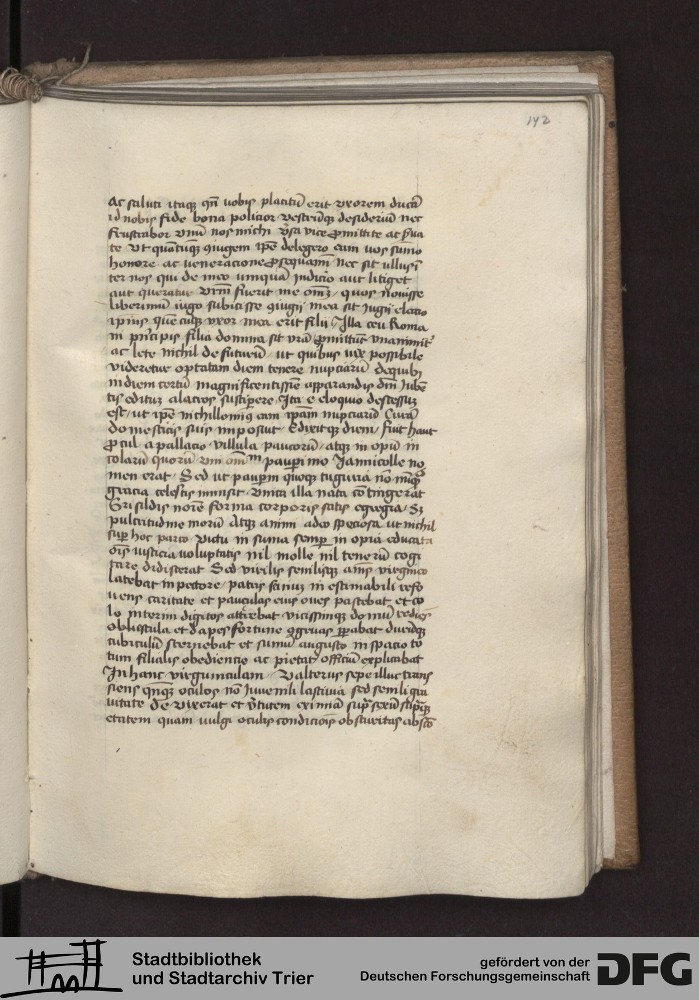 142
Ac saluti itaqz qn̄ uobis placitū erit vxorem ducā
id nobis fide bona policior vestrūqz desideriū nec
frustrabor Vnū nos michi
te vt quācūqz ꝯiugem ip̄e delegero eam uos sumo
honore ac ueneracione ꝓsequamī nec sit ullus ī
ter nos qui de meo umquā iudicio aut litiget
aut queratur vr̄m fuerit me om̄ quos nouisse
liberimū iugo subicisse ꝯiugij mea sit iugij electio
ipius que cūqz vxor mea erit filij Illa ceu Roma
ni prīcipis filia domina sit vrā ꝓmittūt vnanimit᷑
ac lete nichil defuturū ut quibus vix possibile
videretur optatam diem tenere nupciarū de quibꝰ
in diem certū magnificentissīe apparandis dm̄ iubē
tis edictū alacres suscipere Ita e eloquio descessuz
est ut ip̄e nichillominꝰ eam ip̄am nupciarū Curā
domesticis suis imposuit Edixitqz diem fuit haut
ꝓcul a pallacio villula paucorū atqz in opū in
colarū quorū vni om̄iū paupīmo Jannicolle no
men erat Sed ut paupm̄ quoqz tuguria nō nūqz
gracia celestis inuisit vnica illa nata cōtingerat
Grisildis noīe forma corporis satis egregia Sz
pulcritudine morū Atqz animi adeo speciosa ut nichil
sup̄ hoc parco victu in suma semp̄ in opia educata
oīs iusticia uoluptatis nil molle nil tenerū cogi
tare didiscerat Sed virilis senilisqz aīs virgineo
latebat in pectore patris senius in estimabili refo
uens caritate et pauculas eius oues pascebat et co
lo interim digitos atterebat vicissimqz domū rediēs
obluscula et dapes fortune ꝯgruas p̄parabat durūqz
cubiculū sternebat et sumū angusto in spacio to
tum filialis obediencie ac pietatꝭ officiū explicabat
In hanc virgunculam Valterus sepe illuc trans
siens qn̄qz oculos nō iuuenili lasciuia sed senili gra
uitate defixerat et v̄tutem eximiā sup̄ sexū supqz
etatem quam uulgi oculis condiciōis obscuritas absco
Stadtbibliothek
und Stadtarchiv Trier
gefördert von der
Deutschen Forschungsgemeinschaft
DFG